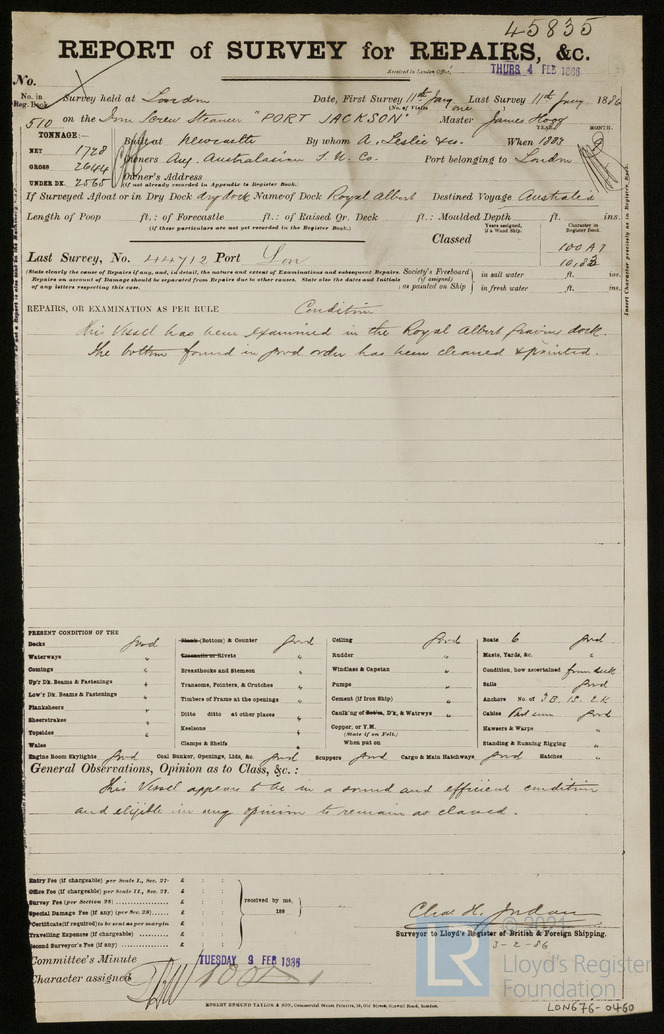 45835
REPORT of SURVEY for REPAIRS, &c.
Received in London Office, THURS 4 FEB 1886
No.
No. in Reg. Book. Survey held at London Date, First Survey 11th Jany Last Survey 11th Jany 1886
(No. of Visits one )
510 on the Iron Screw Steamer "PORT JACKSON" Master James Hogg
TONNAGE:— YEAR. MONTH.
NET 1728 Built at Newcastle By whom A. Leslie & Co. When 1882
GROSS 2644 Owners Ang. Australasian S. N. Co. Port belonging to London
UNDER DK. 2565 Owner's Address
(If not already recorded in Appendix to Register Book.)
If Surveyed Afloat or in Dry Dock dry dock Name of Dock Royal Albert Destined Voyage Australia
Length of Poop ft.: of Forecastle ft.: of Raised Qr. Deck ft.: Moulded Depth ft. ins.
(If these particulars are not yet recorded in the Register Book.)
Years assigned, if a Wood Ship. Character in Register Book.
Classed 100 A1
10,83
Last Survey, No. 44712 Port Lon
(State clearly the cause of Repairs if any, and, in detail, the nature and extent of Examinations and subsequent Repairs. Repairs on account of Damage should be separated from Repairs due to other causes. State also the dates and initials of any letters respecting this case.
Society's Freeboard (if assigned) as painted on Ship
in salt water ft. ins.
in fresh water ft. ins.
Insert Character precisely as in Register Book.
REPAIRS, OR EXAMINATION AS PER RULE Condition
This Vessel has been examined in the Royal Albert graving dock.
The bottom found in good order has been cleaned & painted.
PRESENT CONDITION OF THE
Decks good
Waterways "
Comings "
Up'r Dk. Beams & Fastenings "
Low'r Dk. Beams & Fastenings "
Planksheers "
Sheerstrakes "
Topsides "
Wales
Plank (Bottom) & Counter good
Treenails or Rivets "
Breasthooks and Stemson "
Transoms, Pointers, & Crutches "
Timbers of Frame at the openings "
Ditto ditto at other places "
Keelsons "
Clamps & Shelfs "
Ceiling good
Rudder "
Windlass & Capstan "
Pumps "
Cement (if Iron Ship) "
Caulk'ng of Botm, D'k, & Watrwys "
Copper, or Y.M.
(State if on Felt.)
When put on
Boats 6 good
Masts, Yards, &c. "
Condition, how ascertained from deck
Sails good
Anchors No. of 3B. 1S. 2K
Cables Part seen good
Hawsers & Warps "
Standing & Running Rigging "
Engine Room Skylights good Coal Bunker, Openings, Lids, &c. good Scuppers good Cargo & Main Hatchways good Hatches "
General Observations, Opinion as to Class, &c.:
This Vessel appears to be in a sound and efficient condition
and eligible in my opinion to remain as classed.
Entry Fee (if chargeable) per Scale I., Sec. 27. £ : :
Office Fee (if chargeable) per Scale II., Sec. 27. £ : :
Survey Fee (per Section 28) £ : :
Special Damage Fee (if any) (per Sec. 28) £ : :
*Certificate (if required) to be sent as per margin £ : :
Travelling Expenses (if chargeable) £ : :
Second Surveyor's Fee (if any) £ : :
received by me,
188
Chas H. Jordan
Surveyor to Lloyd's Register of British & Foreign Shipping.
3-2-86
Committee's Minute TUESDAY 9 FEB 1886
Character assigned 100A1
ROBERT EDMUND TAYLOR & SON, Commercial Steam Printers, 19, Old Street, Goswell Road, London.
© 2021
LR
Lloyd's Register
Foundation
LON676-0460